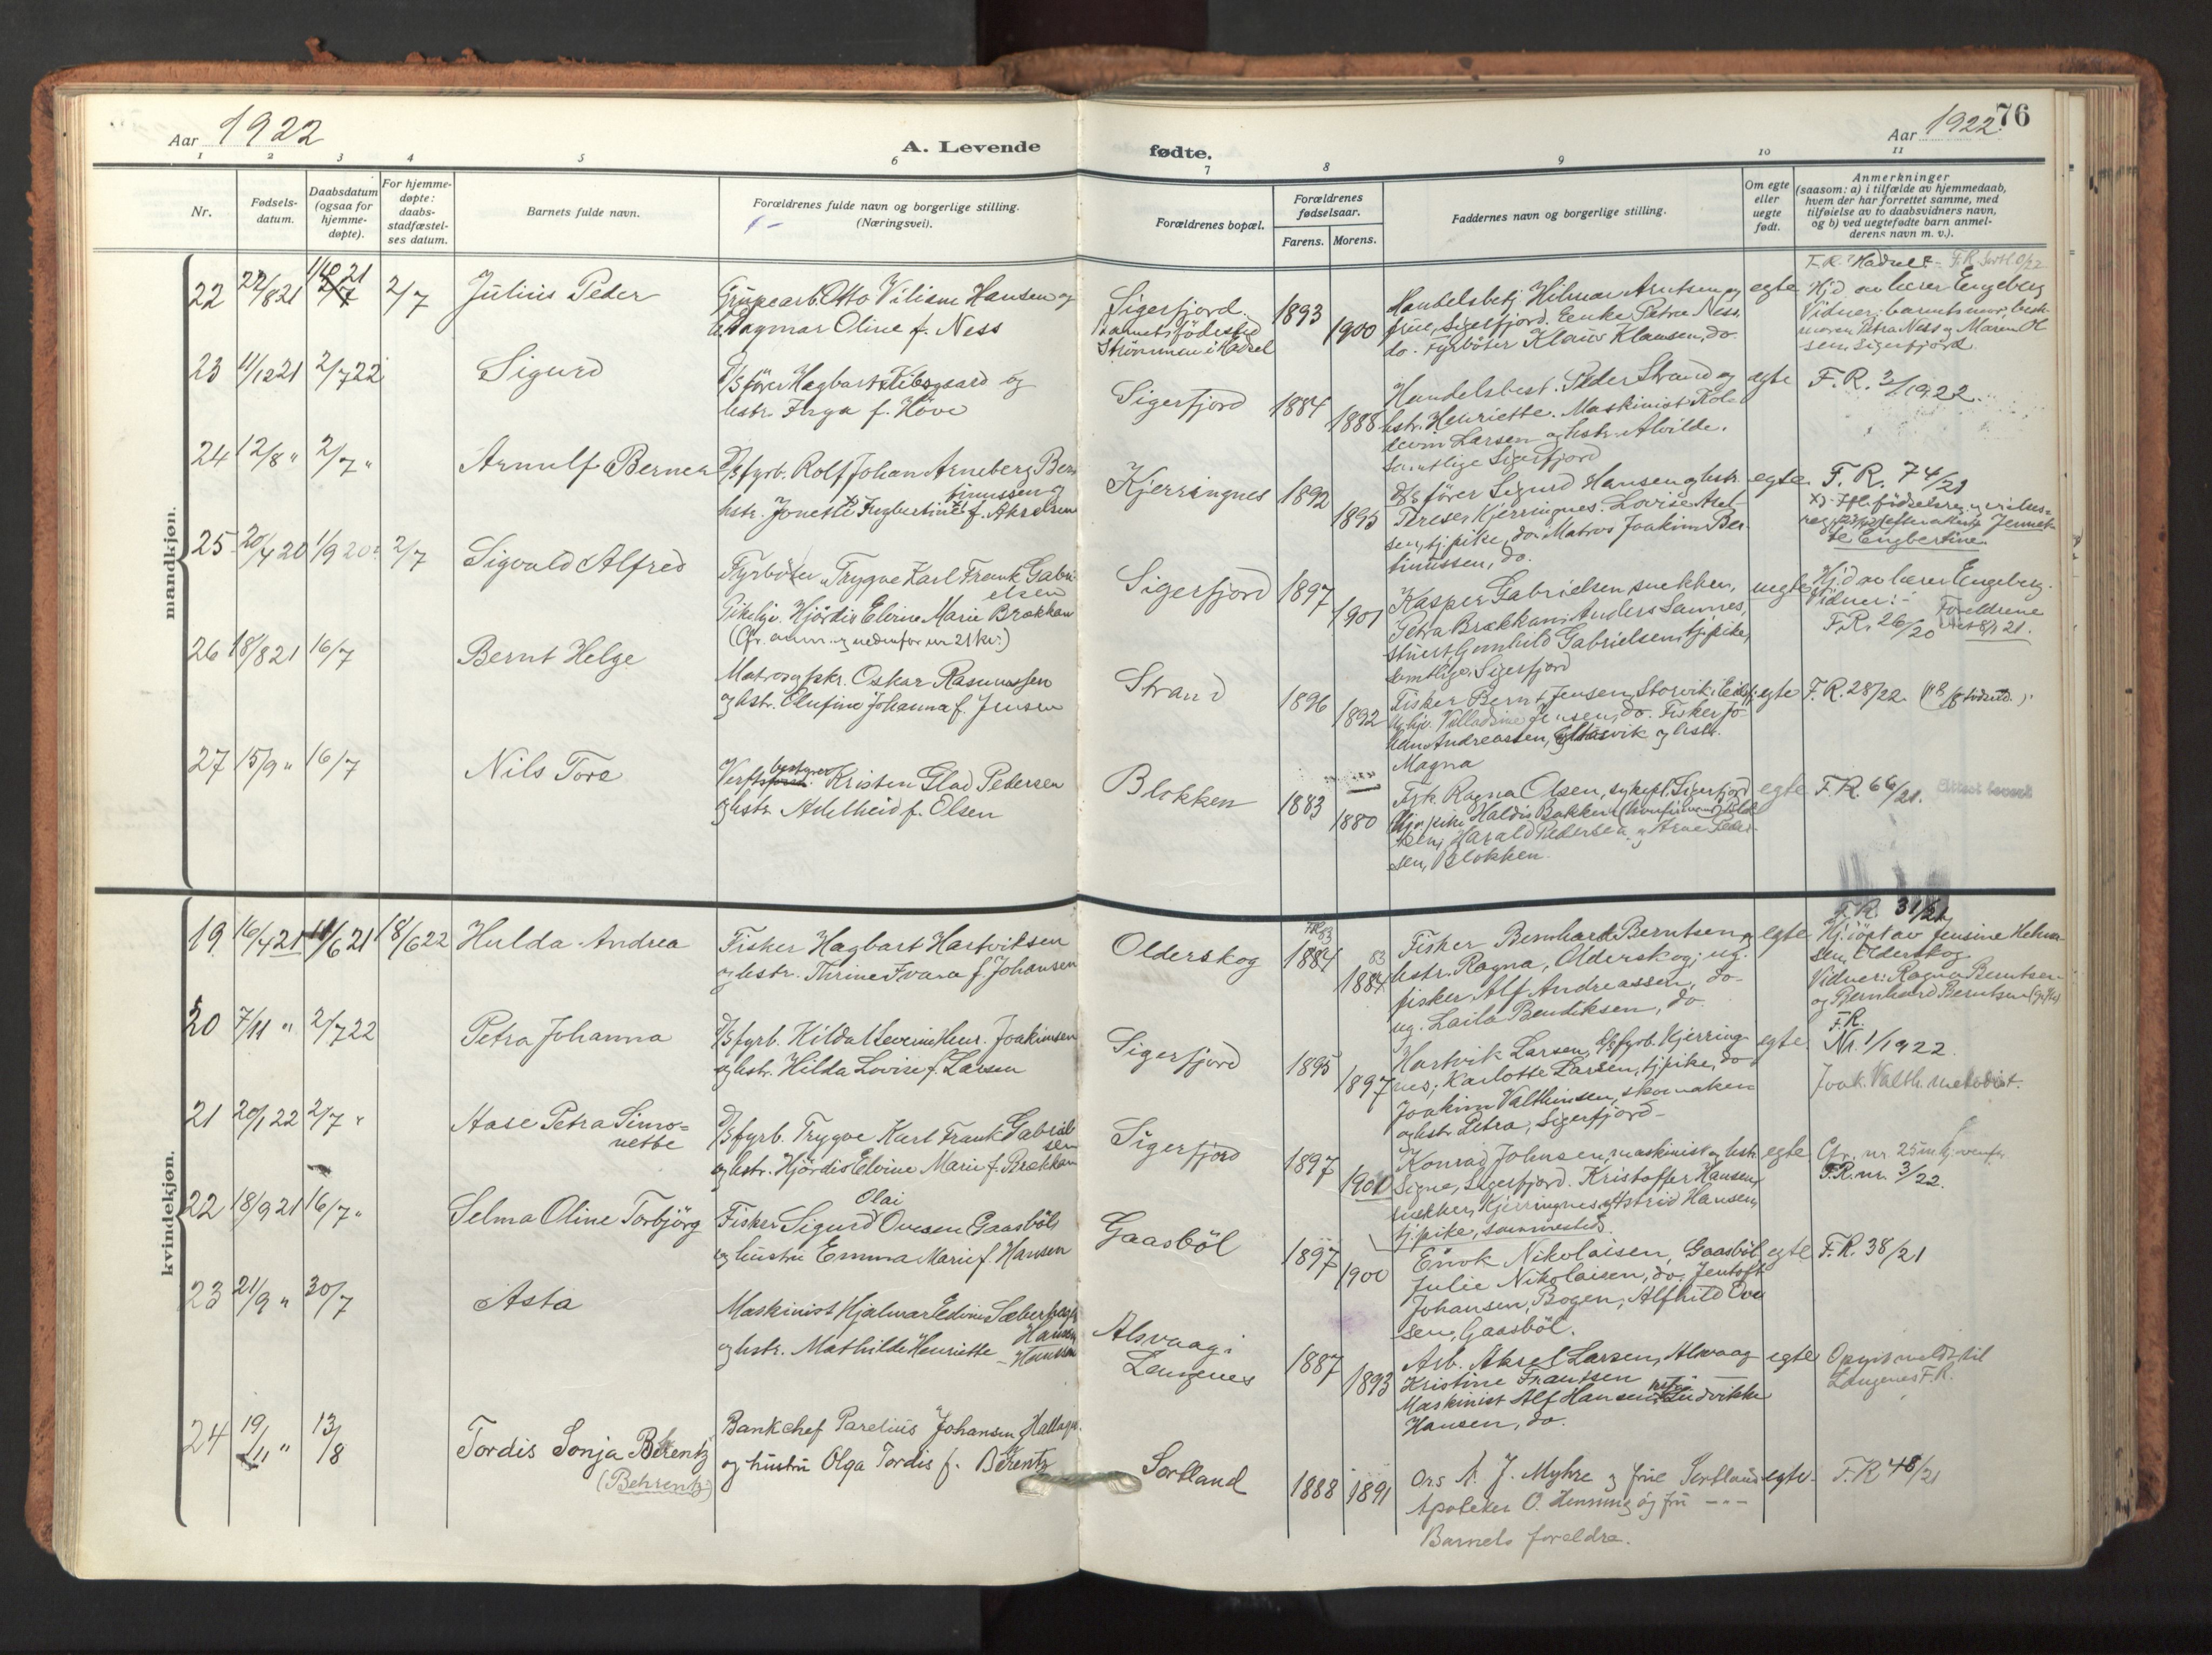 Aar 1922
A. Levende
fødte.
Aar 1922. 76
1 2 3 4 5 6 7 8 9 10 11
Nr.
Fødsels-
datum.
Daabsdatum
(ogsaa for
hjemme-
døpte).
For hjemme-
døpte:
daabs-
stadfæstel-
ses datum.
Barnets fulde navn.
Forældrenes fulde navn og borgerlige stilling.
(Næringsvei).
Forældrenes bopæl.
Forældrenes
fødselsaar.
Farens. Morens.
Faddernes navn og borgerlige stilling.
Om egte
eller
uegte
født.
Anmerkninger
(saasom: a) i tilfælde av hjemmedaab,
hvem der har forrettet samme, med
tilføielse av to daabsvidners navn,
og b) ved uegtefødte barn anmel-
derens navn m. v.).
mandkjøn.
22 22/8 21 2/7 Julius Peder
Grupearb. Otto Viliam Hansen og
Dagmar Oline f. Ness
Sigerfjord.
barnets fødested
Strømmen i Hadsel
1893 1900
Handelsbetj. Hilmar Arntsen og
frue, Sigerfjord. Enke Petra Ness,
do. Fyrbøter Klaus Klausen, do.
egte
Hj.d. av lærer Engeberg
Vidner: barnets mor, beste-
moren Petra Ness og Maren Ol
sen, Sigerfjord.
23 11/12 21 2/7 22 Sigurd
D/S fører Hagbart Kibsgaard og
hstr. Inga f. Höve
Sigerfjord 1884 1888
Handelsbest. Peder Strand og
hstr. Henriette. Maskinist Kole
Larsen og hstr. Alvilde.
Samtlige Sigerfjord
egte F.R. 3/1922.
24 12/8 " 2/7 " Arnulf Bernea
D/S fyrb. Rolf Johan Arneberg Ber
tinussen og
hstr. Jonette Ingbertine f. Akselsen
Kjerringnes 1892 1895
D/S fører Sigurd Hansen og hstr.
Terese, Kjerringnes. Lovise Axel
sen, tj.pike, do. Matros Joakim Ber-
tinussen, do.
egte F.R. 74/21
Jennet-
te Engbertine
25 20/4 20 1/9 20 2/7 Sigvald Alfred
Fyrböter Trygve Karl Frank Gabri-
elsen
Pike Hjørdis Elvine Marie Brækkan
(Cfr. anm. og nedenfor nr 21 kv.)
Sigerfjord 1897 1901
Kasper Gabrielsen, snekker,
Petra Brækkan, Anders Sannes,
stuert, Gunhild Gabrielsen, tj.pike,
samtlige Sigerfjord
uegte
Hj.d. av lærer Engeberg.
Vidner: Forældrene
F.R. 26/20
26 18/8 21 16/7 Bernt Helge
Matros og fskr. Oskar Rasmussen
og hstr. Olufine Johanna f. Jensen
Strand 1896 1892
Fisker Bernt Jensen, Storvik i Eidsfj.
Valladine Jensen, do. Fisker Jo-
han Andreassen, Storvik og hstr.
Magna
egte F.R. 28/22.
27 15/9 " 16/7 Nils Tore
Verfts bestyrer Kristen Glad Pedersen
og hstr. Adelheid f. Olsen
Blokken 1883 1880
Frk. Ragna Olsen, sykepl. Sigerfjord
pike Haldis Bakken Blok
ken, Harald Pedersen og Arne Peder-
sen, Blokken.
egte F.R. 66/21.
kvindekjøn.
19 16/4 21 11/6 21 18/6 22 Hulda Andrea
Fisker Hagbart Hartviksen
og hstr. Thrine Ivara f. Johansen
Olderskog 1884 1884
Fisker Bernhard Berntsen og
hstr. Ragna, Olderskog; ug.
fisker Alf Andreassen, do.
ug. Laila Bendiksen, do.
egte
F.R. 31/21
Hj.döpt av Jensine Helme
sen, Olderskog
Vidner: Ragna Berntsen
og Bernhard Berntsen
20 7/11 " 2/7 22 Petra Johanna
D/S fyrb. Hildal Severin Henr. Joakimsen
og hstr. Hilda Lovise f. Larsen
Sigerfjord 1895 1897
Hartvik Larsen, D/S fyrb. Kjerring-
nes; Karlotte Larsen, tj.pike, do
Joakim Valthinsen, skomaker
og hstr. Petra, Sigerfjord
egte
F.R.
Nr. 1/1922.
Joak. Valth. metodist.
21 20/1 22 2/7 " Aase Petra Simo=
nette
D/S fyrb. Trygve Karl Frank Gabriel
sen
og hstr. Hjördis Elvine Marie f. Brækkan
Sigerfjord 1897 1901
Konrad Johnsen, maskinist og hstr
Signe, Sigerfjord. Kristoffer Hansen,
snekker, Kjerringnes, Astrid Hansen,
tj.pike, sammesteds.
egte
Cfr. nr. 25 mkj. ovenfor
F.R. nr. 3/22.
22 18/9 21 16/7 " Selma Oline Torbjörg
Fisker Sigurd Olai Ovesen Gaasböl
og hustru Emma Marie f. Hansen
Gaasböl 1897 1900
Enok Nikolaisen, Gaasböl
Julie Nikolaisen, do. Jentoft
Johansen, Bogen, Alfhild Ove
sen, Gaasböl.
egte F.R. 38/21
23 21/9 " 30/7 Asta
Maskinist Hjalmar Edvin Sæberg
Hansen
og hstr. Mathilde Henriette Hansen
Alsvaag i
Langenes
1887 1893
Arb. Aksel Larsen, Alsvaag
Kristine Frantsen
Maskinist Alf Hansen, Ludvikke
Hansen, do.
egte
Opgit meldt til
Langenes F.R.
24 19/11 " 13/8 Tordis Sonja Berentz
(Behrentz)
Bankchef Parelius Johansen Hallagn.
og hustru Olga Tordis f. Berentz
Sortland 1888 1891
Ors A. J. Myhre og frue Sortland
Apoteker O. Henning og fru - - -
Barnets foreldre.
egte F.R. 48/21